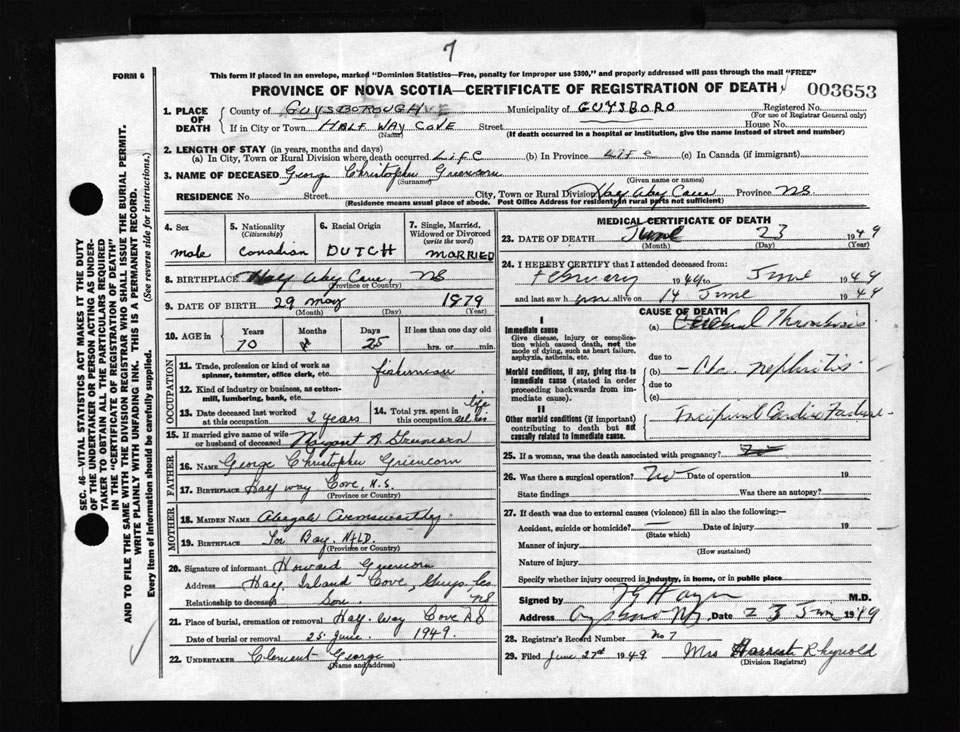 7
FORM 6
This form if placed in an envelope, marked "Dominion Statistics—Free, penalty for improper use $300," and properly addressed will pass through the mail "FREE"
PROVINCE OF NOVA SCOTIA—CERTIFICATE OF REGISTRATION OF DEATH
003653
1. PLACE OF DEATH
County of GUYSBOROUGH Municipality of GUYSBORO Registered No.
(For use of Registrar General only)
If in City or Town HALF WAY COVE Street House No.
(Name) (If death occurred in a hospital or institution, give the name instead of street and number)
2. LENGTH OF STAY (in years, months and days)
(a) In City, Town or Rural Division where death occurred Life (b) In Province Life (c) In Canada (if immigrant)
3. NAME OF DECEASED George Christopher Greencorn
(Surname) (Given name or names)
RESIDENCE No. Street City, Town or Rural Division Half Way Cove Province NS
(Residence means usual place of abode. Post Office Address for residents in rural parts not sufficient)
4. Sex
male
5. Nationality
(Citizenship)
Canadian
6. Racial Origin
DUTCH
7. Single, Married, Widowed or Divorced
(write the word)
MARRIED
8. BIRTHPLACE Half Way Cove, NS
(Province or Country)
9. DATE OF BIRTH 29 May 1879
(Month) (Day) (Year)
10. AGE in Years Months Days If less than one day old
70 25 hrs. or min.
OCCUPATION
11. Trade, profession or kind of work as
spinner, teamster, office clerk, etc. fisherman
12. Kind of industry or business, as cotton-
mill, lumbering, bank, etc.
13. Date deceased last worked
at this occupation 2 years
14. Total yrs. spent in
this occupation life
15. If married give name of wife
or husband of deceased Margaret A Greencorn
FATHER
16. NAME George Christopher Greencorn
17. BIRTHPLACE Half way Cove, N.S.
(Province or Country)
MOTHER
18. MAIDEN NAME Abigale Armsworthy
19. BIRTHPLACE Tor Bay, NFLD.
(Province or Country)
20. Signature of informant Howard Greencorn
Address Half Island Cove, Guys. Co. NS
Relationship to deceased Son
21. Place of burial, cremation or removal Half Way Cove NS
Date of burial or removal 25 June 1949.
22. UNDERTAKER Clement George
(Name and address)
MEDICAL CERTIFICATE OF DEATH
23. DATE OF DEATH June 23 1949
(Month) (Day) (Year)
24. I HEREBY CERTIFY that I attended deceased from:
February 1949 to June 1949
and last saw him alive on 14 June 1949
CAUSE OF DEATH
I
Immediate cause
Give disease, injury or complica-
tion which caused death, not the
mode of dying, such as heart failure,
asphyxia, asthenia, etc.
(a) Cerebral Thrombosis
due to
Morbid conditions, if any, giving rise to
immediate cause (stated in order
proceeding backwards from im-
mediate cause).
(b) Chr. Nephritis
due to
(c)
II
Other morbid conditions (if important)
contributing to death but not
causally related to immediate cause.
Incipient Cardiac Failure
25. If a woman, was the death associated with pregnancy?
26. Was there a surgical operation? No Date of operation 19
State findings Was there an autopsy?
27. If death was due to external causes (violence) fill in also the following:—
Accident, suicide or homicide? — Date of injury 19
(State which)
Manner of injury
(How sustained)
Nature of injury
Specify whether injury occurred in industry, in home, or in public place
Signed by M.D.
Address Date 23 June 1949
28. Registrar's Record Number No 7
29. Filed June 27th 1949 Mrs Harriet Rhynold
(Division Registrar)
SEC. 46—VITAL STATISTICS ACT MAKES IT THE DUTY
OF THE UNDERTAKER OR PERSON ACTING AS UNDER-
TAKER TO OBTAIN ALL THE PARTICULARS REQUIRED
IN THE "CERTIFICATE OF REGISTRATION OF DEATH"
AND TO FILE THE SAME WITH THE DIVISION REGISTRAR WHO SHALL ISSUE THE BURIAL PERMIT.
WRITE PLAINLY WITH UNFADING INK. THIS IS A PERMANENT RECORD.
Every item of information should be carefully supplied. (See reverse side for instructions.)